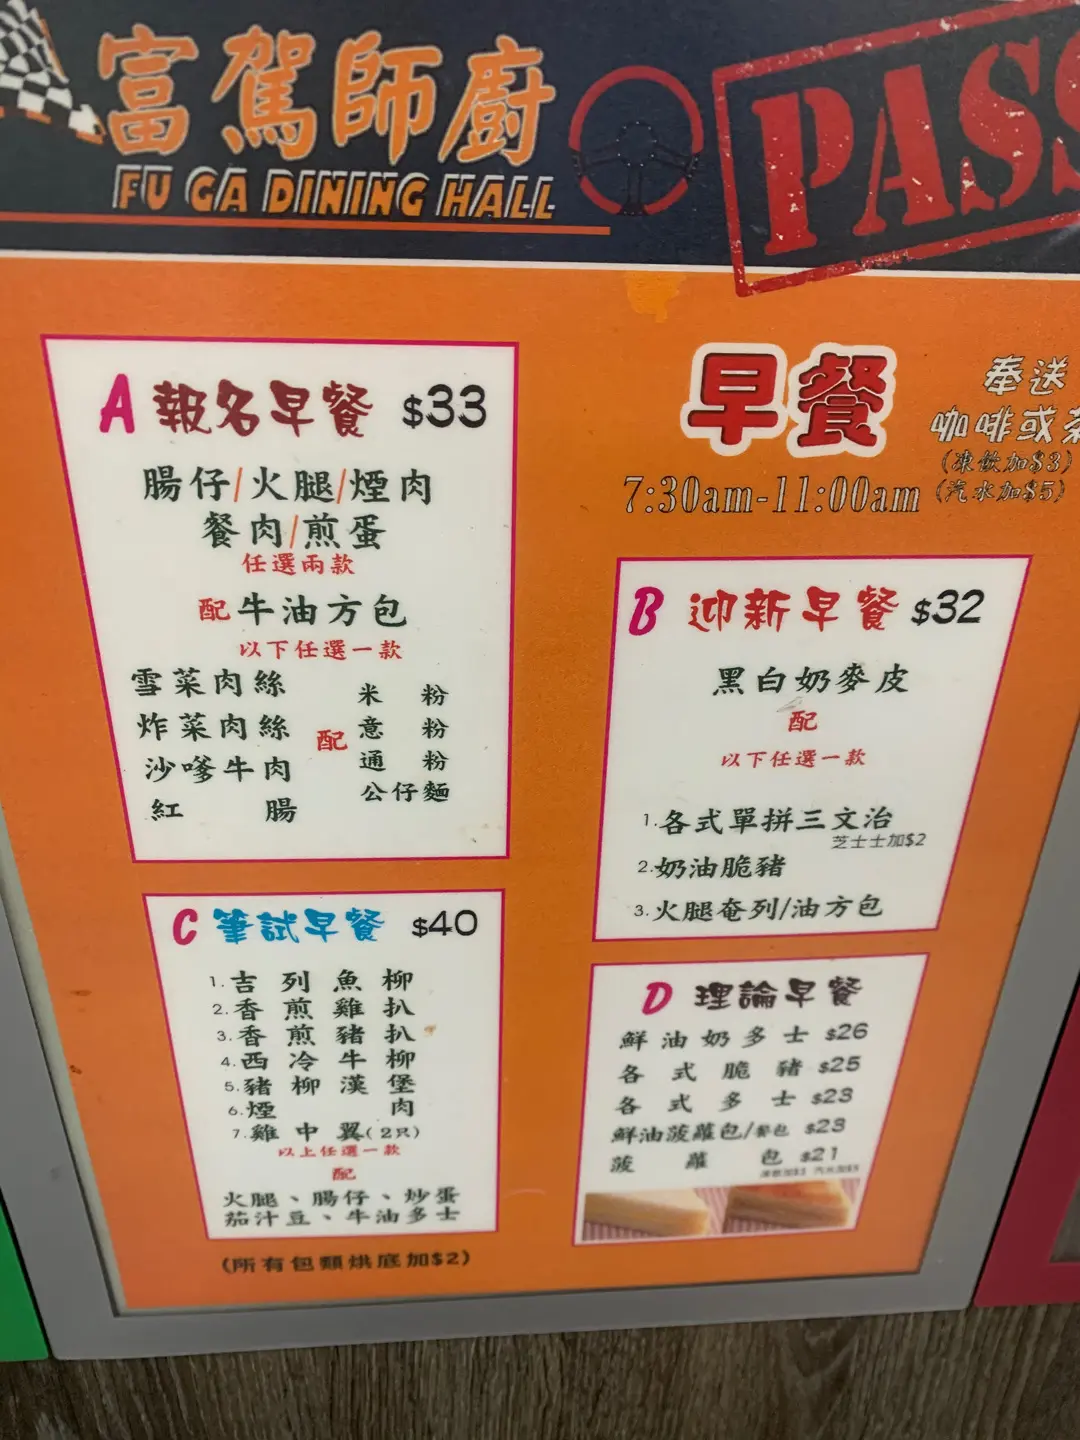 富駕師廚
FU GA DINING HALL
PASS
A 報名早餐 $33
腸仔/火腿/煙肉
餐肉/煎蛋
任選兩款
配牛油方包
以下任選一款
雪菜肉絲
炸菜肉絲
沙嗲牛肉
紅腸
配
米粉
意粉
通粉
公仔麵
早餐
7:30am-11:00am
奉送
咖啡或茶
(凍飲加$3)
(汽水加$5)
B 迎新早餐 $32
黑白奶麥皮
配
以下任選一款
1.各式單拼三文治
芝士士加$2
2.奶油脆豬
3.火腿奄列/油方包
C 筆試早餐 $40
1.吉列魚柳
2.香煎雞扒
3.香煎豬扒
4.西冷牛柳
5.豬柳漢堡
6.煙肉
7.雞中翼(2只)
以上任選一款
配
火腿、腸仔、炒蛋
茄汁豆、牛油多士
D 理論早餐
鮮油奶多士 $26
各式脆豬 $25
各式多士 $23
鮮油菠蘿包/餐包 $23
菠蘿包 $21
凍飲加$3 汽水加$5
(所有包類烘底加$2)